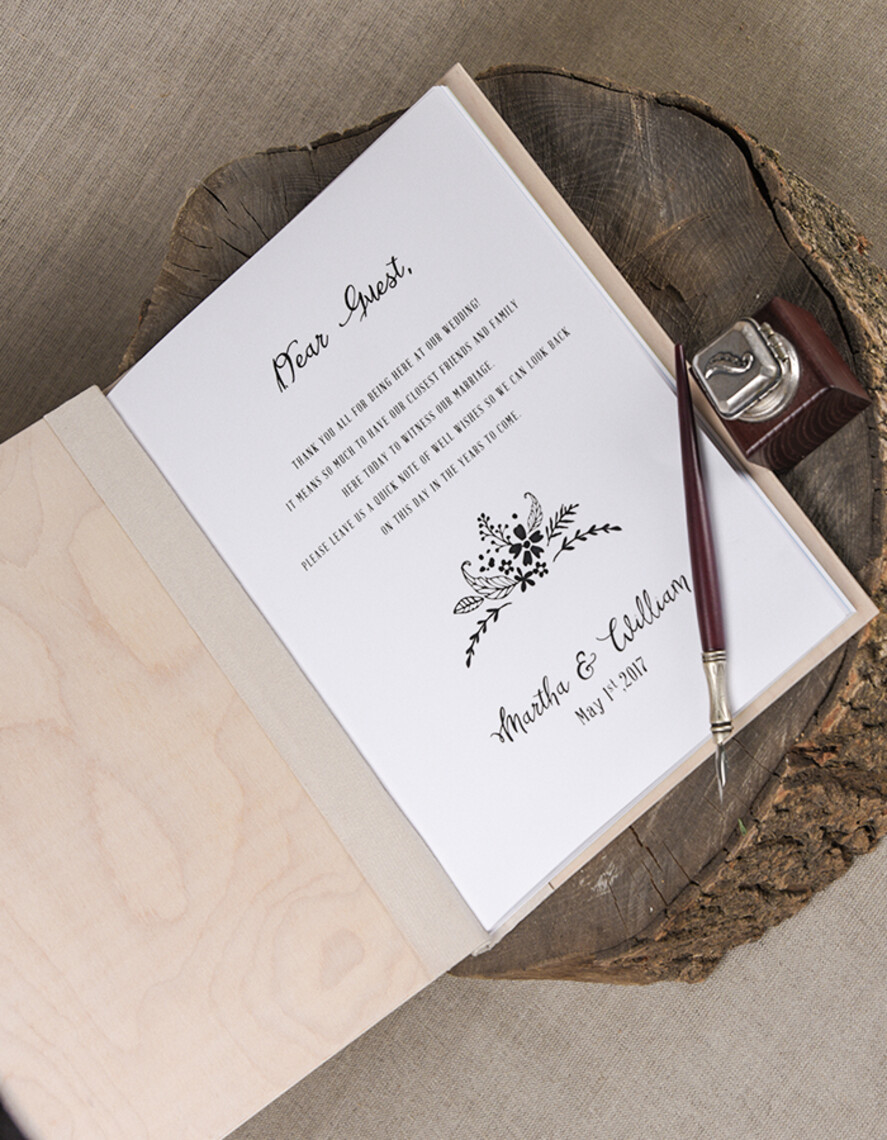 Dear Guest,
THANK YOU ALL FOR BEING HERE AT OUR WEDDING!
IT MEANS SO MUCH TO HAVE OUR CLOSEST FRIENDS AND FAMILY
HERE TODAY TO WITNESS OUR MARRIAGE.
PLEASE LEAVE US A QUICK NOTE OF WELL WISHES SO WE CAN LOOK BACK
ON THIS DAY IN THE YEARS TO COME.
Martha & William
May 1st,2017